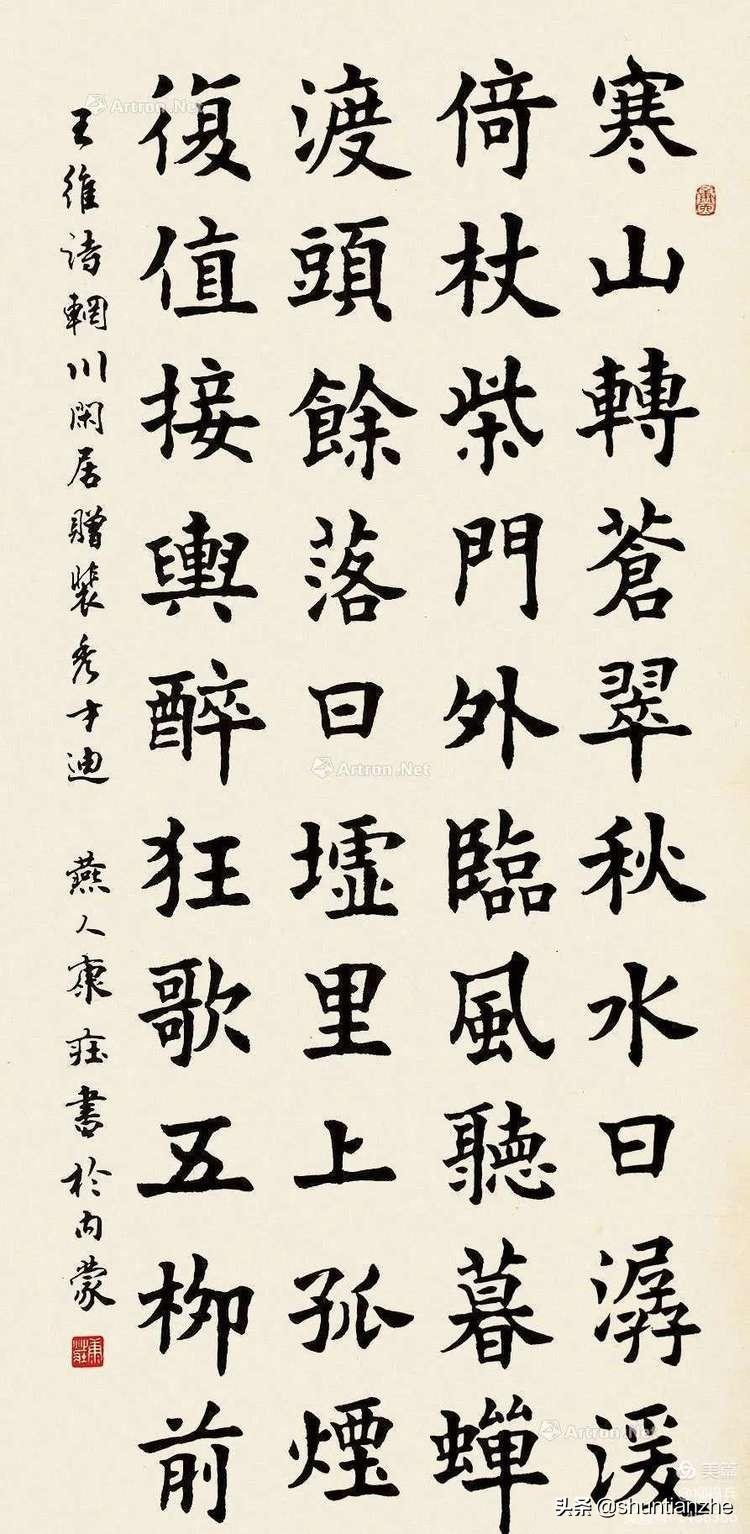 寒山轉蒼翠秋水日潺湲
倚杖柴門外臨風聽暮蟬
渡頭餘落日墟里上孤煙
復值接輿醉狂歌五柳前
王維詩輞川閑居贈裴秀才迪 燕人康莊書於內蒙
Artron.Net
Artron.Net
Artron.Net
美篇
头条 @shuntianzhe